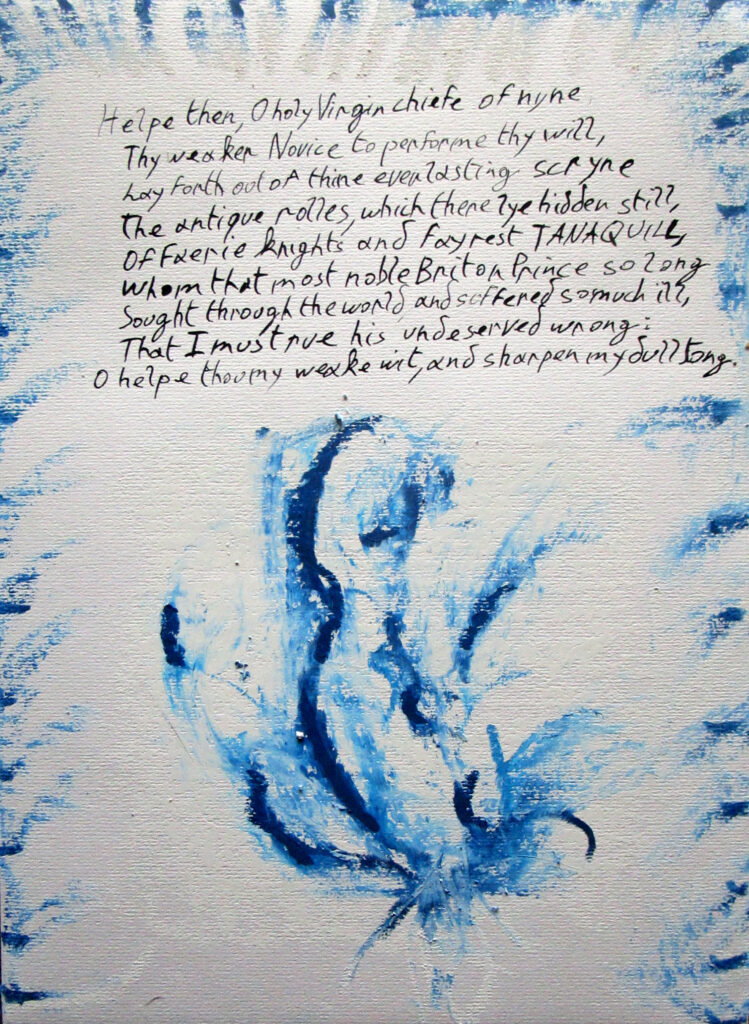 Helpe then, O holy Virgin chiefe of nyne
Thy weaker Novice to performe thy will,
Lay forth out of thine everlasting scryne
The antique rolles, which there lye hidden still,
Of Faerie knights and fayrest TANAQUILL,
Whom that most noble Briton Prince so long
Sought through the world, and suffered so much ill,
That I must rue his undeserved wrong:
O helpe thou my weake wit, and sharpen my dull tong.